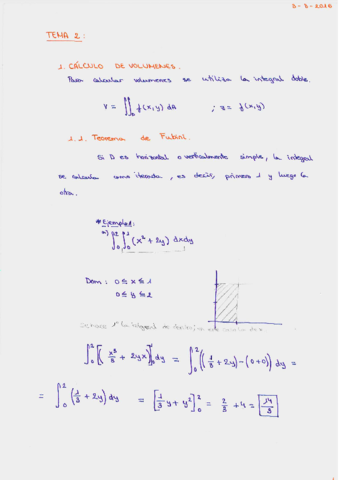 3-3-2016
TEMA 2:
1. CÁLCULO DE VOLUMENES.
Para calcular volumenes se utiliza la integral doble.
V = ∬_D f(x,y) dA ; z = f(x,y)
1.1. Teorema de Fubini.
Si D es horizontal o verticalmente simple, la integral
se calcula como iterada, es decir, primero 1 y luego la
otra.
*Ejemplo1:
a) ∫_0^2 ∫_0^1 (x² + 2y) dxdy
Dom: 0 ≤ x ≤ 1
0 ≤ y ≤ 2
1º la integral de
∫_0^2 [(x³/3 + 2yx)]_0^1 dy = ∫_0^2 ((1/3 + 2y) - (0+0)) dy =
= ∫_0^2 (1/3 + 2y) dy = [1/3 y + y²]_0^2 = 2/3 + 4 = 14/3